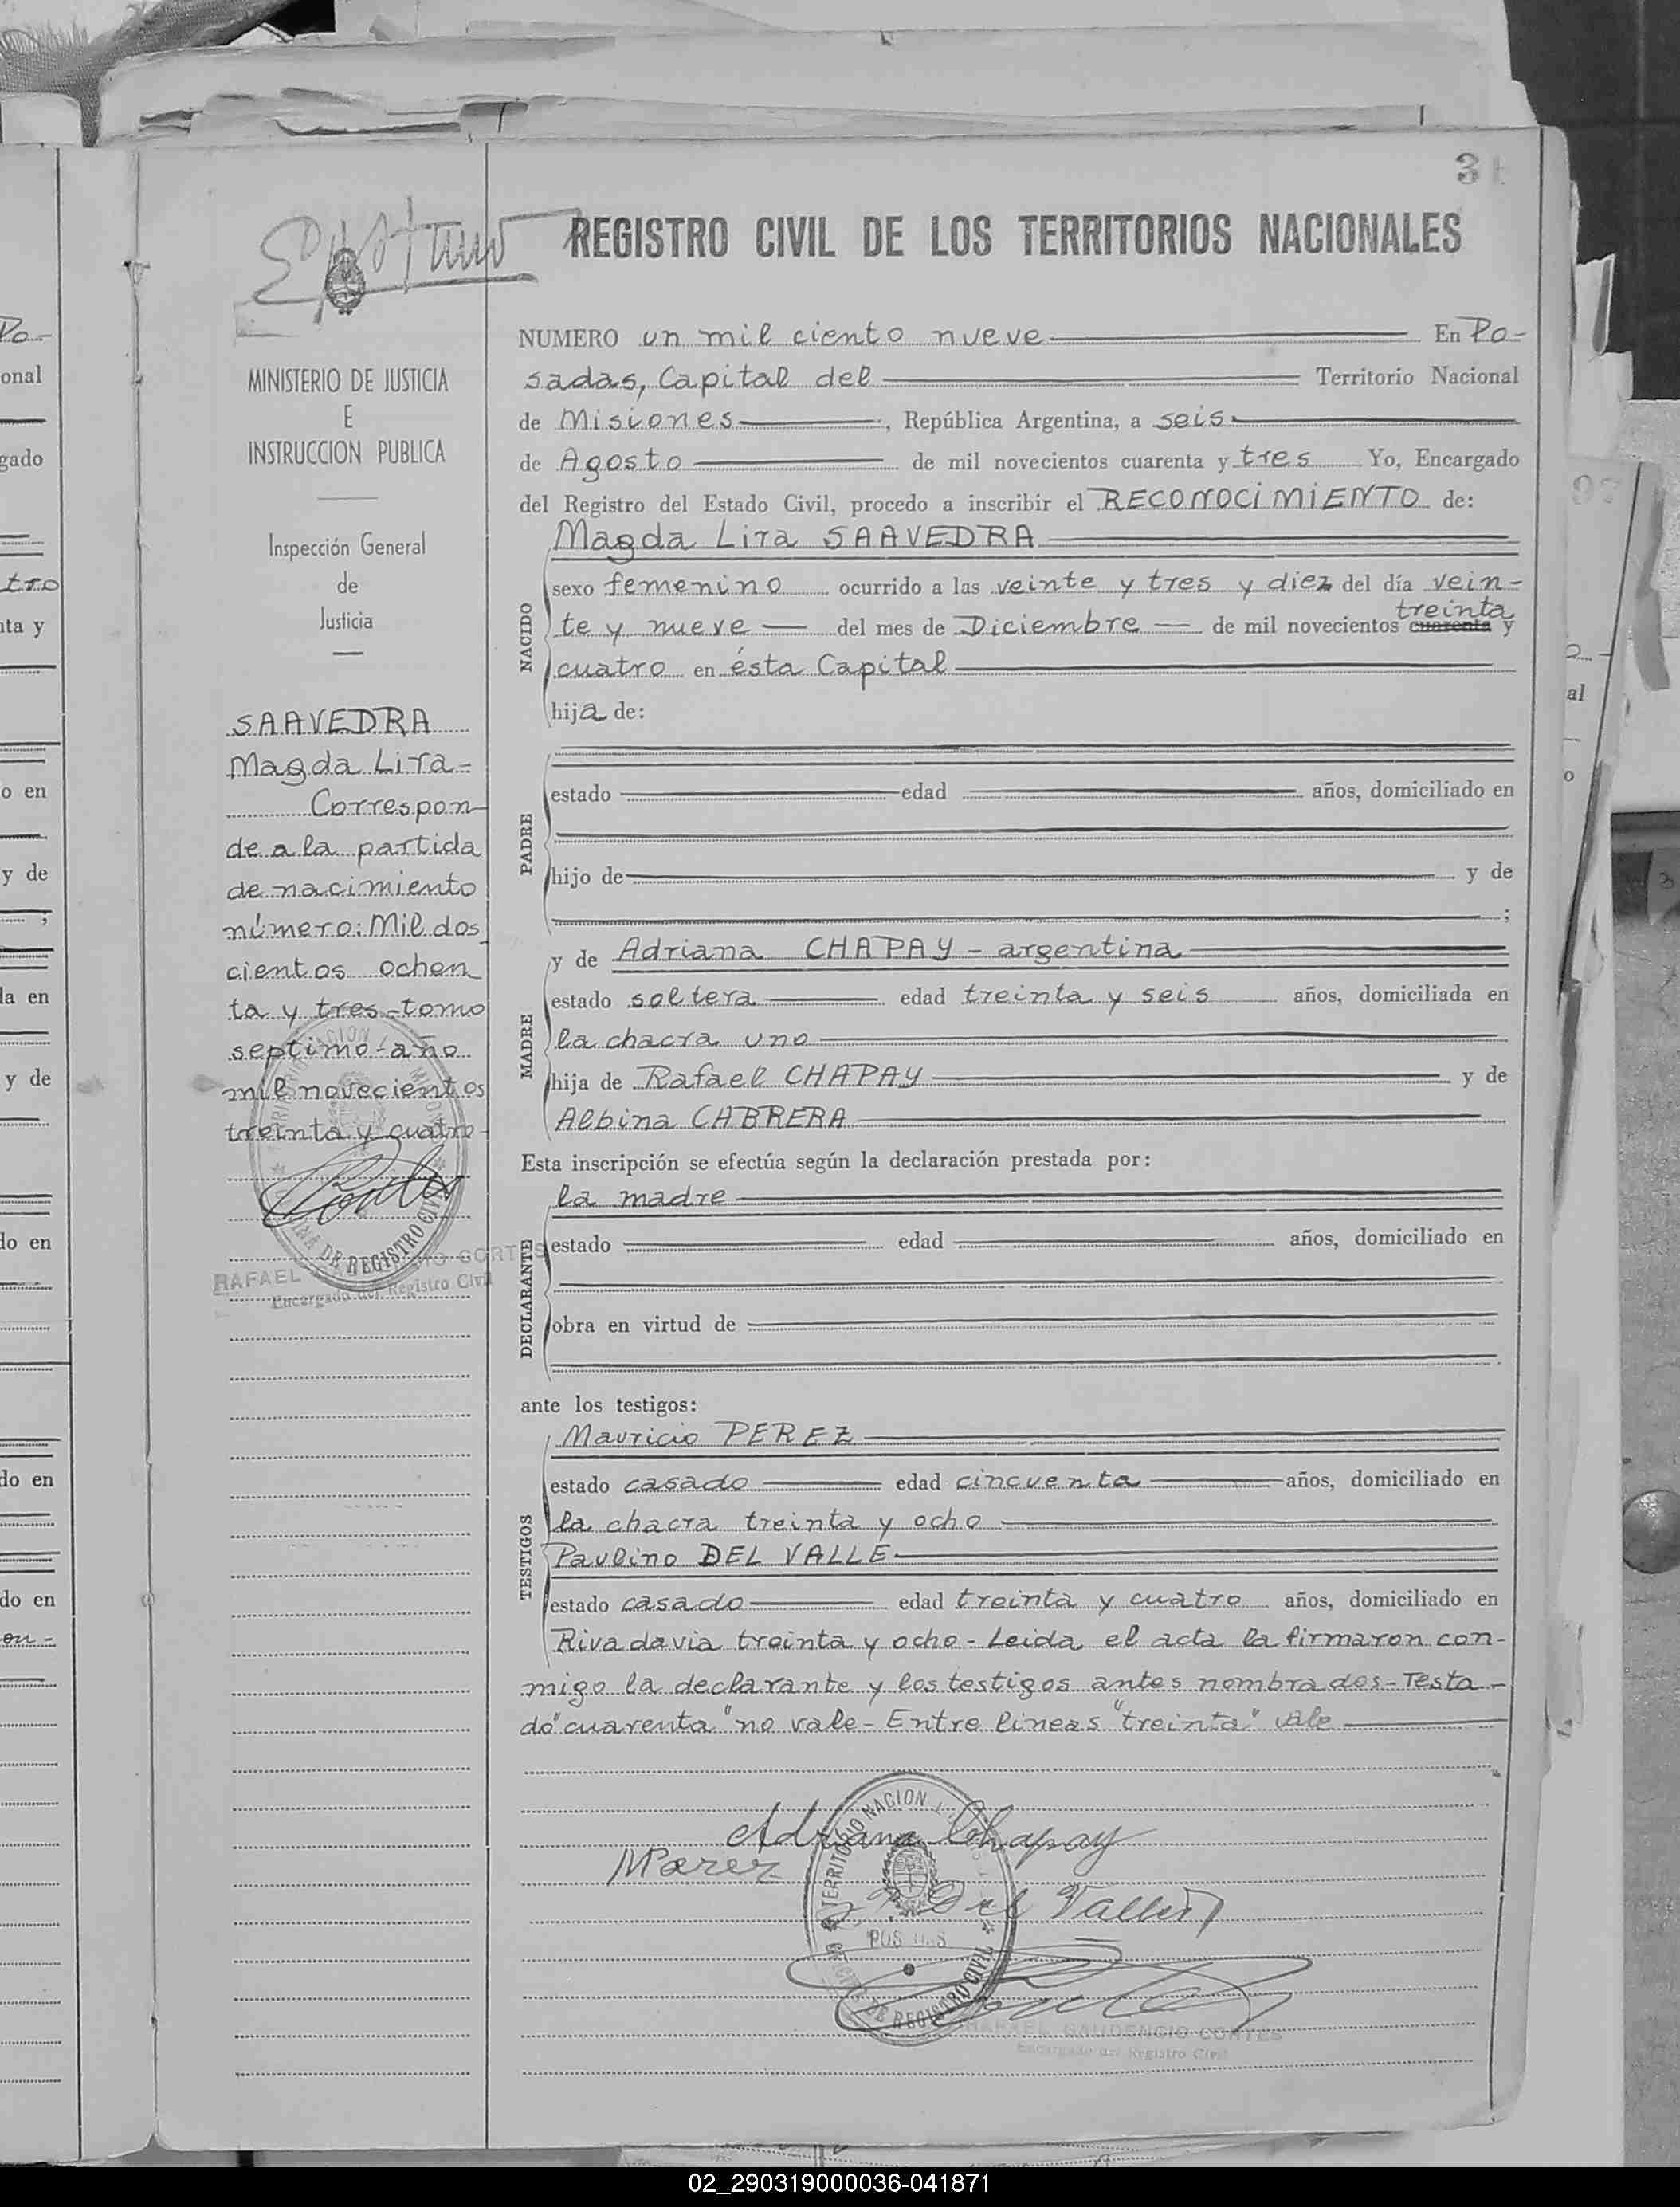 3
REGISTRO CIVIL DE LOS TERRITORIOS NACIONALES
MINISTERIO DE JUSTICIA
E
INSTRUCCION PUBLICA
Inspección General
de
Justicia
SAAVEDRA
Magda Lira-
Correspon-
de a la partida
de nacimiento
número: Mil dos
cientos ochen
ta y tres-tomo
septimo-año
mil novecientos
treinta y cuatro-
RAFAEL GAUDENCIO CORTES
Encargado del Registro Civil
NUMERO un mil ciento nueve En Po-
sadas, Capital del Territorio Nacional
de Misiones, República Argentina, a seis
de Agosto de mil novecientos cuarenta y tres Yo, Encargado
del Registro del Estado Civil, procedo a inscribir el RECONOCIMIENTO de:
NACIDO
Magda Lira SAAVEDRA
sexo femenino ocurrido a las veinte y tres y diez del día vein-
treinta
te y nueve del mes de Diciembre de mil novecientos cuarenta y
cuatro en ésta Capital
hija de:
PADRE
estado edad años, domiciliado en
hijo de y de
;
MADRE
y de Adriana CHAPAY - argentina
estado soltera edad treinta y seis años, domiciliada en
la chacra uno
hija de Rafael CHAPAY y de
Albina CABRERA
Esta inscripción se efectúa según la declaración prestada por:
DECLARANTE
la madre
estado edad años, domiciliado en
obra en virtud de
ante los testigos:
TESTIGOS
Mauricio PEREZ
estado casado edad cincuenta años, domiciliado en
la chacra treinta y ocho
Paulino DEL VALLE
estado casado edad treinta y cuatro años, domiciliado en
Rivadavia treinta y ocho - Leida el acta la firmaron con-
migo la declarante y los testigos antes nombrados - Testa-
do "cuarenta" no vale - Entre lineas "treinta" vale
Adriana Chapay
TERRITORIO NACIONAL
DE REGISTRO CIVIL
RAFAEL GAUDENCIO CORTES
Encargado del Registro Civil
02_290319000036-041871